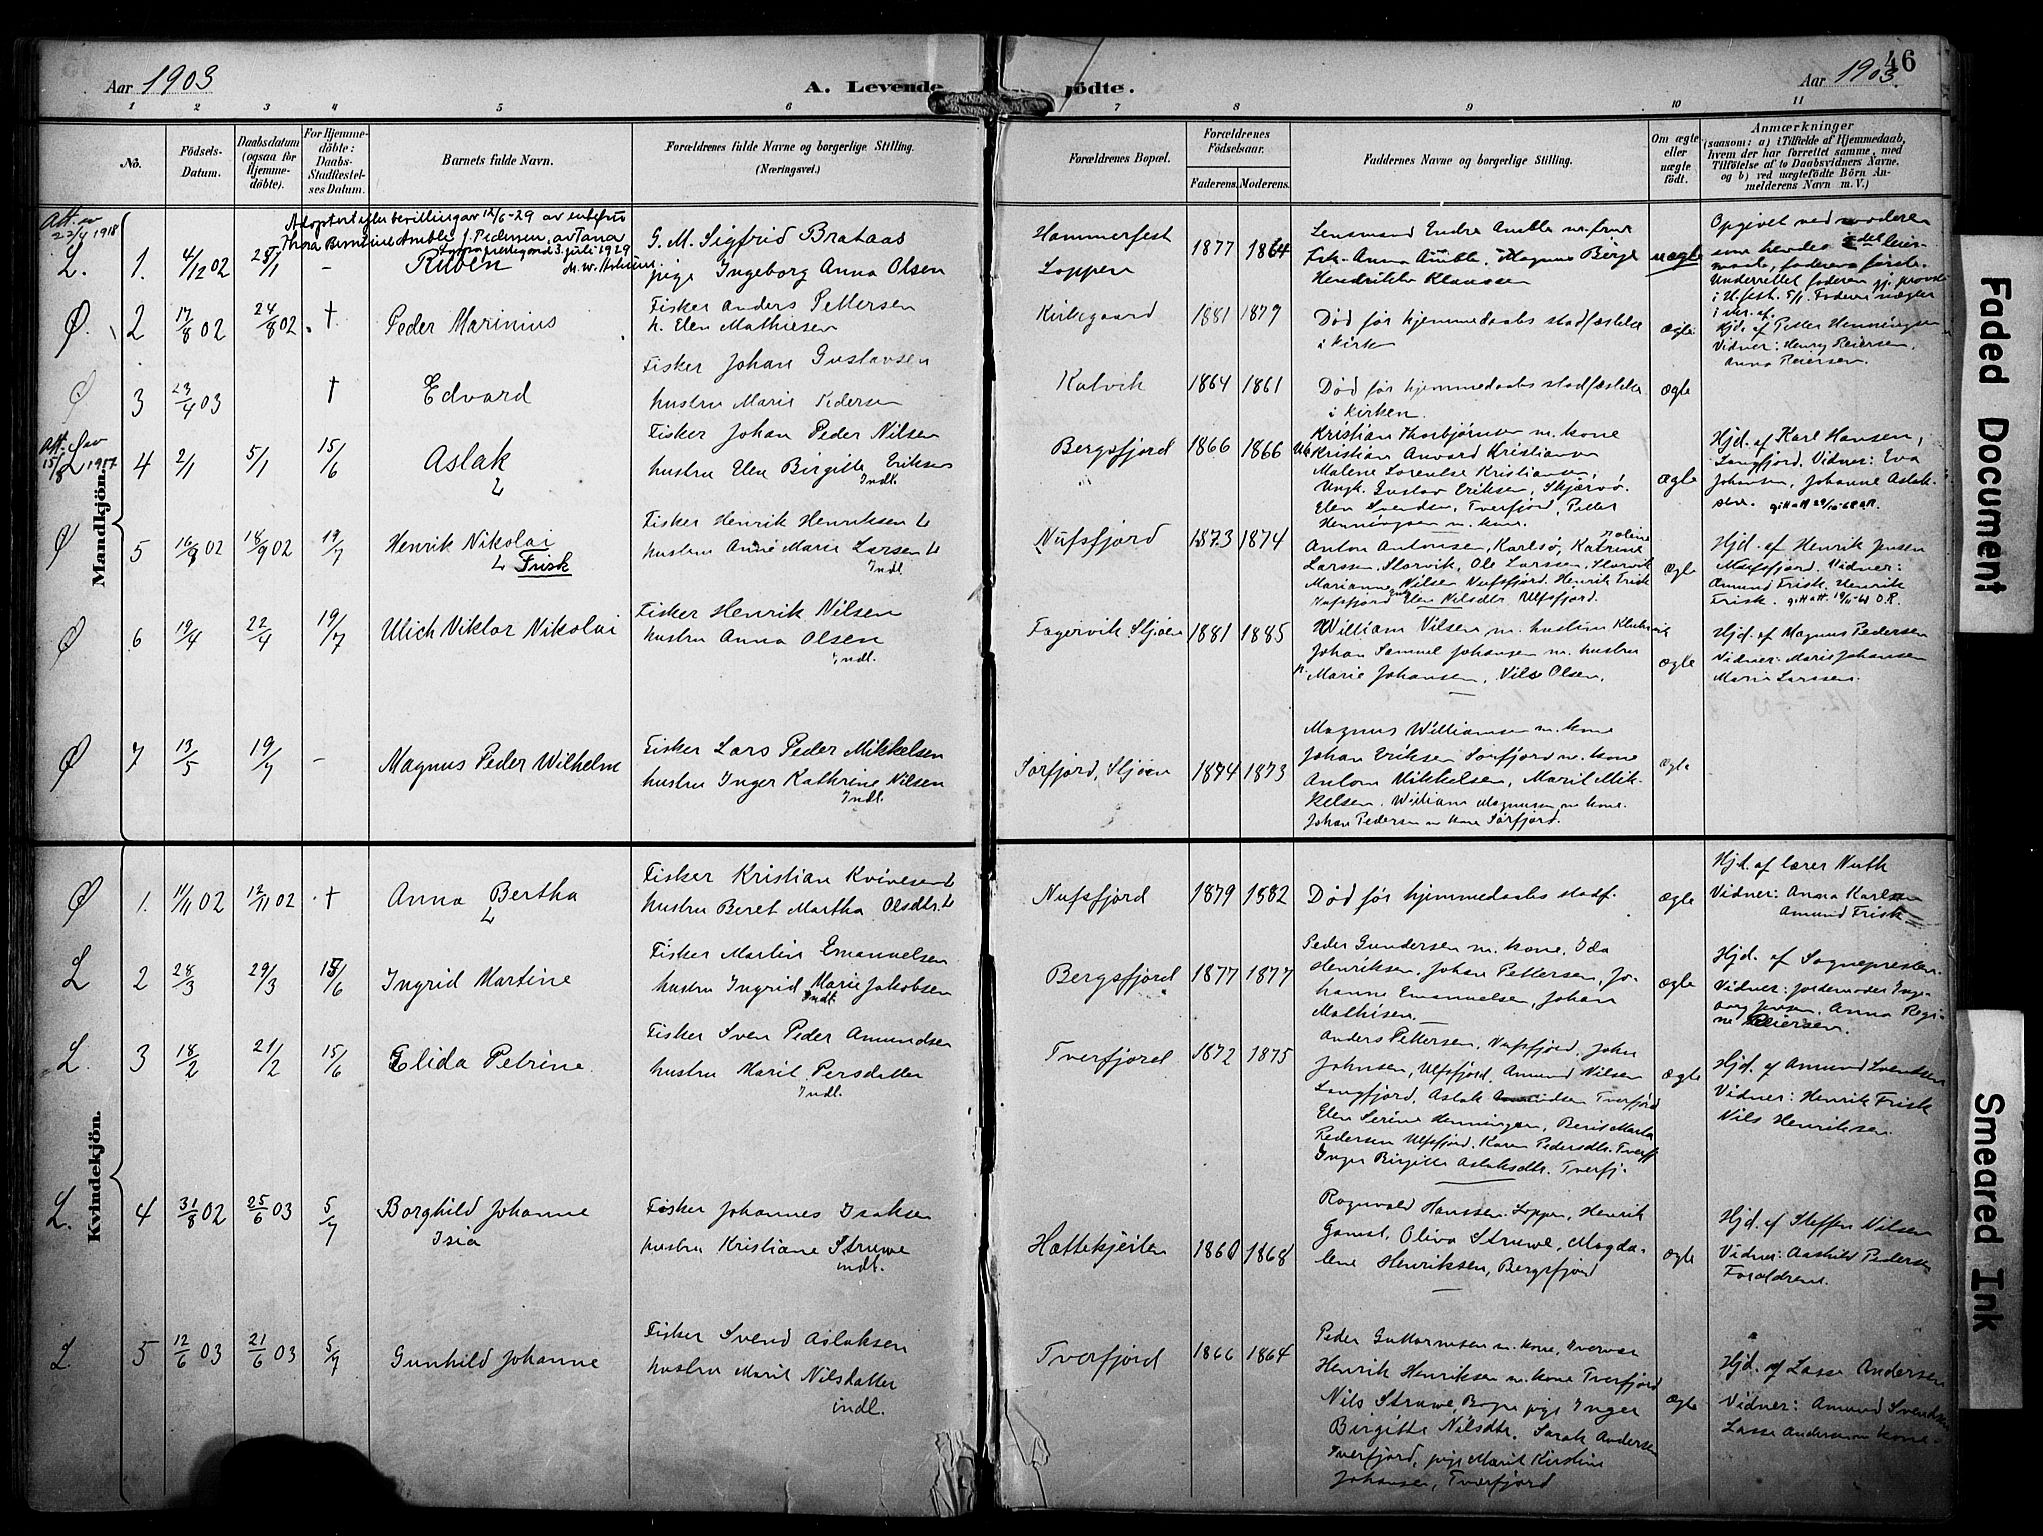 Aar 1903
A. Levende
födte.
Aar 1903
46
1 2 3 4 5 6 7 8 9 10 11
No.
Födsels-
Datum.
Daabsdatum
(ogsaa for
Hjemme-
döbte).
For Hjemme-
döbte:
Daabs-
Stadfæstel-
ses Datum.
Barnets fulde Navn.
Forældrenes fulde Navne og borgerlige Stilling.
(Næringsvei.)
Forældrenes Bopæl.
Forældrenes
Födselsaar.
Faderens. Moderens.
Faddernes Navne og borgerlige Stilling.
Om ægte
eller
uægte
födt.
Anmærkninger
(saasom: a) i Tilfælde af Hjemmedaab,
hvem der har forrettet samme, med
Tilföielse af to Daabsvidners Navne,
og b) ved uægtefödte Börn An-
melderens Navn m. V.)
Mandkjön.
Att. av
22/4 1918
Adoptert efter bevilling av 12/6-29 av enkefru
Thora Berntine Amble f. Pedersen, av Tana
L. 1. 4/12 02 - Ruben
G. M. Sigfrid Brataas
pige Ingeborg Anna Olsen
Hammerfest
Loppen
1877 1864
Lensmand Endre Amble m. frue
Frk. Anna Amble, Magnus Börge
Hendrikke Klaussen
uægte
Opgivet ved moderen
Ø. 2 17/8 02 24/8 02 † Peder Marinius
Fisker Anders Pettersen
h. Elen Mathiesen
Kirkegaard
1881 1879
Död för hjemmedaabs stadfæstelse
i kirken
ægte
Hjd. af Petter Henningsen
Vidner: Henry Reiersen,
Anna Reiersen.
Ø 3 23/4 03 † Edvard
Fisker Johan Gustavsen
hustru Marie Pedersen
Kalvik
1864 1861
Död för hjemmedaabs stadfæstelse
i kirken.
ægte
15/8 1917
L 4 2/1 5/1 15/6 Aslak
Fisker Johan Peder Nilsen
hustru Elen Birgitte Eriksen
Indl.
Bergsfjord
1866 1866
Kristian Thorbjörnsen m. kone
Kristian Anvard Kristiansen
Malene Lorentse Kristiansen,
Ungk. Gustav Eriksen, Skjærvö.
Elen Svendsen, Tverfjord, Peder
Henningsen m. kone.
ægte
Hjd. af Karl Hansen,
Langfjord. Vidner: Eva
Johansen, Johanne Aslak-
sen.
Ø 5 16/9 02 18/9 02 19/7 Henrik Nikolai
Frisk
Fisker Henrik Henriksen
hustru Anne Marie Larsen
Indl.
Nufsfjord
1873 1874
Anton Antonsen, Karlsö, Katrine
Larssen, Storvik, Ole Larssen, Storvik
Marianne Nilsen Nufsfjord. Henrik Frisk
Nufsfjord Elen Nilsdtr Ulfsfjord.
ægte
Hjd. af Henrik Jensen
Nufsfjord. Vidner:
Amund Frisk, Henrik
Frisk.
Ø 6 19/4 22/4 19/7 Ulrich Viktor Nikolai
Fisker Henrik Nilsen
hustru Anna Olsen
Indl.
Fagervik Stjöen
1881 1885
William Nilsen m. hustru
Johan Samuel Johansen m. hustru
Marie Johansen, Nils Olsen.
ægte
Hjd. af Magnus Pedersen
Vidner: Marie Johansen
Marie Larssen.
Ø 7 13/5 19/7 - Magnus Peder Wilhelm
Fisker Lars Peder Mikkelsen
hustru Inger Kathrine Nilsen
Indl.
Sörfjord, Stjöen
1874 1873
Magnus Williamsen m. kone
Johan Eriksen Sörfjord m. kone
Anton Mikkelsen, Marit Mik-
kelsen. William Magnussen m. kone.
Johan Pedersen m kone Sörfjord.
ægte
Kvindekjön.
Ø 1. 11/11 02 12/11 02 † Anna Bertha
Fisker Kristian Kvivesen
hustru Beret Martha Olsdtr.
Nufsfjord
1879 1882
Död för hjemmedaabs stadf.
ægte
Hjd. af lærer Nuth
Vidner: Anna Karlsen
Amund Frisk
L 2 28/3 29/3 15/6 Ingrid Martine
Fisker Martin Emanuelsen
hustru Ingrid Marie Jakobsen
Indl.
Bergsfjord
1877 1877
Peder Gundersen m. kone, Ida
Henriksen, Johan Pettersen, Jo-
hanne Emanuelsen, Johan
Mathisen.
ægte
Hjd. af Sognepresten.
Vidner: Jordemoder Inge-
borg Jensen, Anna Regi-
ne Reiersen.
L. 3 18/2 21/2 15/6 Elida Petrine
Fisker Sven Peder Amundsen
hustru Marit Persdatter
Indl.
Tverfjord
1872 1875
Anders Pettersen, Nufsfjord, John
Johnsen, Ulfsfjord. Amund Nilsen
Langfjord, Aslak Tverfjord
Elen Serine Henningsen, Berit Marta
Pedersen Ulfsfjord, Karen Pedersdtr. Tverfj
Inger Birgitte Aslaksdtr. Tverfj.
ægte
Hjd. af Amund Svendsen
Vidner: Henrik Frisk
Nils Henriksen.
L. 4 31/8 02 25/6 03 5/7 Borghild Johanne
Isia
Fisker Johannes Isaksen
hustru Kristiane Struwe
indl.
Hættekjeilen
1860 1868
Ragnvald Hanssen. Loppen, Henrik
Gamst, Oliva Struwe, Magda-
lene Henriksen, Bergsfjord
ægte
Hjd. af Steffen Nilsen
Vidner: Aashild Pedersen
Forældrene.
L 5 12/6 03 21/6 03 5/7 Gunhild Johanne
Fisker Svend Aslaksen
hustru Marit Nilsdatter
indl.
Tverfjord
1866 1864
Peder Guttormsen m. kone,
Henrik Henriksen m. kone Tverfjord
Nils Struwe, pige Inger
Birgitte Nilsdtr. Sarak Andersen
Tverfjord, pige Marit Kirstine
Johansen, Tverfjord
ægte
Hjd. af Lasse Andersen
Vidner: Amund Svendsen
Lasse Andersens kone.
Faded Document
Smeared Ink